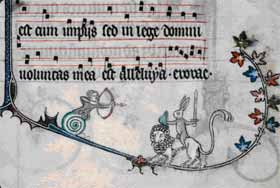 ecte cum impijs sed in lege domini
uoluntas mea est alleluya. evovae.